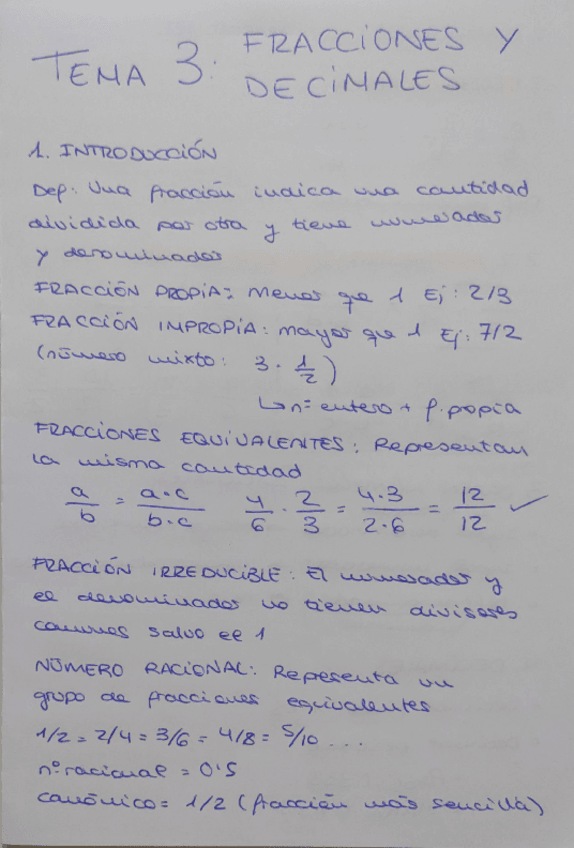 TEMA 3: FRACCIONES Y
DECIMALES
1. INTRODUCCIÓN
Def: Una fracción indica una cantidad
dividida por otra y tiene numerador
y denominador
FRACCIÓN PROPIA: Menor que 1 Ej: 2/3
FRACCIÓN IMPROPIA: mayor que 1 Ej: 7/2
(número mixto: 3 · 1/2)
↳ nº entero + f. propia
FRACCIONES EQUIVALENTES: Representan
la misma cantidad
a/b = a·c/b·c 4/6 · 2/3 = 4·3/2·6 = 12/12 ✓
FRACCIÓN IRREDUCIBLE: El numerador y
el denominador no tienen divisores
comunes salvo el 1
NÚMERO RACIONAL: Representa un
grupo de fracciones equivalentes
1/2 = 2/4 = 3/6 = 4/8 = 5/10 ...
nº racional = 0'5
canónico = 1/2 (fracción más sencilla)